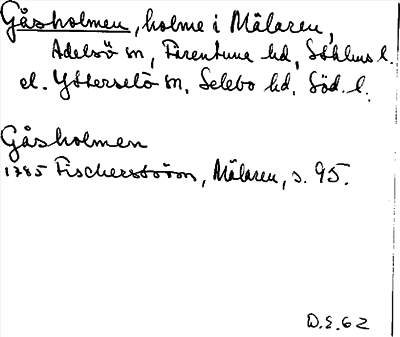 Gåsholmen, holme i Mälaren,
Adelsö sn, Färentuna hd, Sthlms l.
el. Ytterselö sn, Selebo hd, Söd. l.
Gåsholmen
1785 Fischerström, Mälaren, s. 95.
D.E. 62